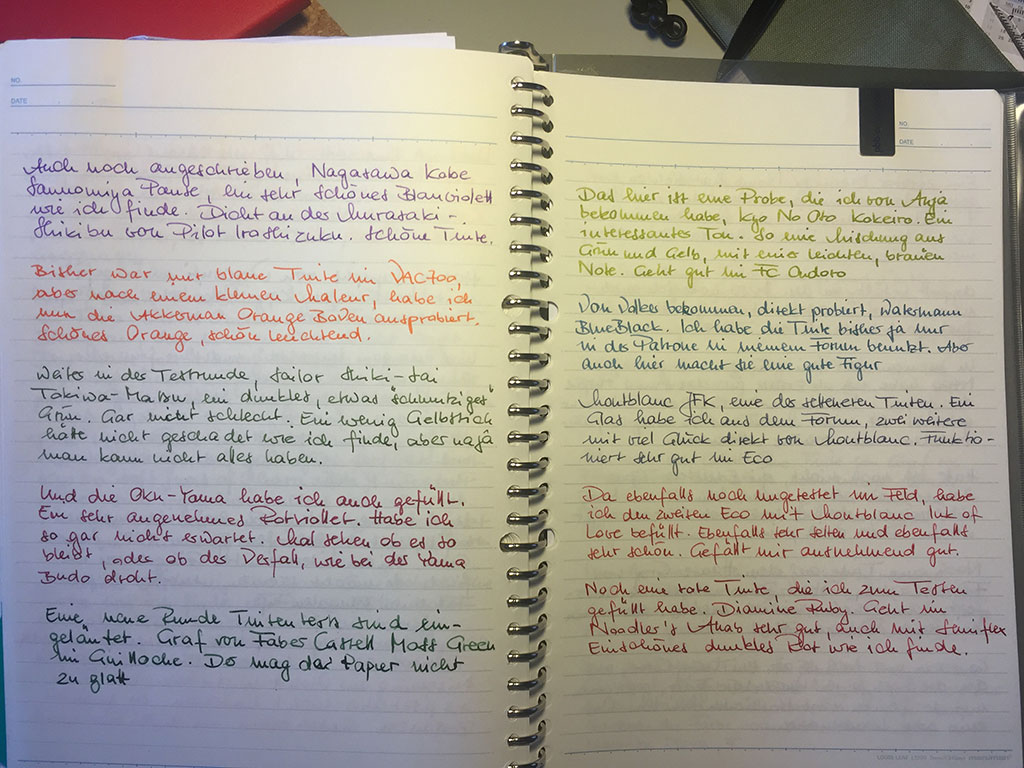 NO.
DATE
Auch noch angeschrieben, Nagasawa Kobe
Sannomiya Pause, ein sehr schönes Blauviolett
wie ich finde. Dicht an der Murasaki-
Shikibu von Pilot Iroshizuku. Schöne Tinte.
Bisher war nur blaue Tinte im VAC700,
aber nach einem kleinen Maleur, habe ich
nun die Akkerman Orange Boven ausprobiert.
Schönes Orange, schön leuchtend.
Weiter in der Testrunde, Sailor Shiki-Sai
Tokiwa-Matsu, ein dunkles, etwas "schmutziges"
Grün. Gar nicht schlecht. Ein wenig Gelbstich
hätte nicht geschadet wie ich finde, aber naja
man kann nicht alles haben.
Und die Oku-Yama habe ich auch gefüllt.
Ein sehr angenehmes Rotviolett. Habe ich
so gar nicht erwartet. Mal sehen ob es so
bleibt, oder ob der Verfall, wie bei der Yama
Budo droht.
Eine neue Runde Tintentests sind ein-
geläutet. Graf von Faber Castell Moss Green
im Guilloche. Der mag das Papier nicht
zu glatt
NO.
DATE
Das hier ist eine Probe, die ich von Anja
bekommen habe, Kyo No Oto Kokeiro. Ein
interessanter Ton. So eine Mischung aus
Grün und Gelb, mit einer leichten, braunen
Note. Geht gut im FC Ondoro
Von Volker bekommen, direkt probiert, Watermann
BlueBlack. Ich habe die Tinte bisher ja nur
in der Patrone in meinem Forum benutzt. Aber
auch hier macht sie eine gute Figur
Montblanc JFK, eine der selteneren Tinten. Ein
Glas habe ich aus dem Forum, zwei weitere
mit viel Glück direkt von Montblanc. Funktio-
niert sehr gut im Eco
Da ebenfalls noch ungetestet im Feld, habe
ich den zweiten Eco mit Montblanc Ink of
Love befüllt. Ebenfalls sehr selten und ebenfalls
sehr schön. Gefällt mir ausnehmend gut.
Noch eine rote Tinte, die ich zum Testen
gefüllt habe. Diamine Ruby. Geht im
Noodler's Ahab sehr gut, auch mit Semiflex
Ein schönes dunkles Rot wie ich finde.